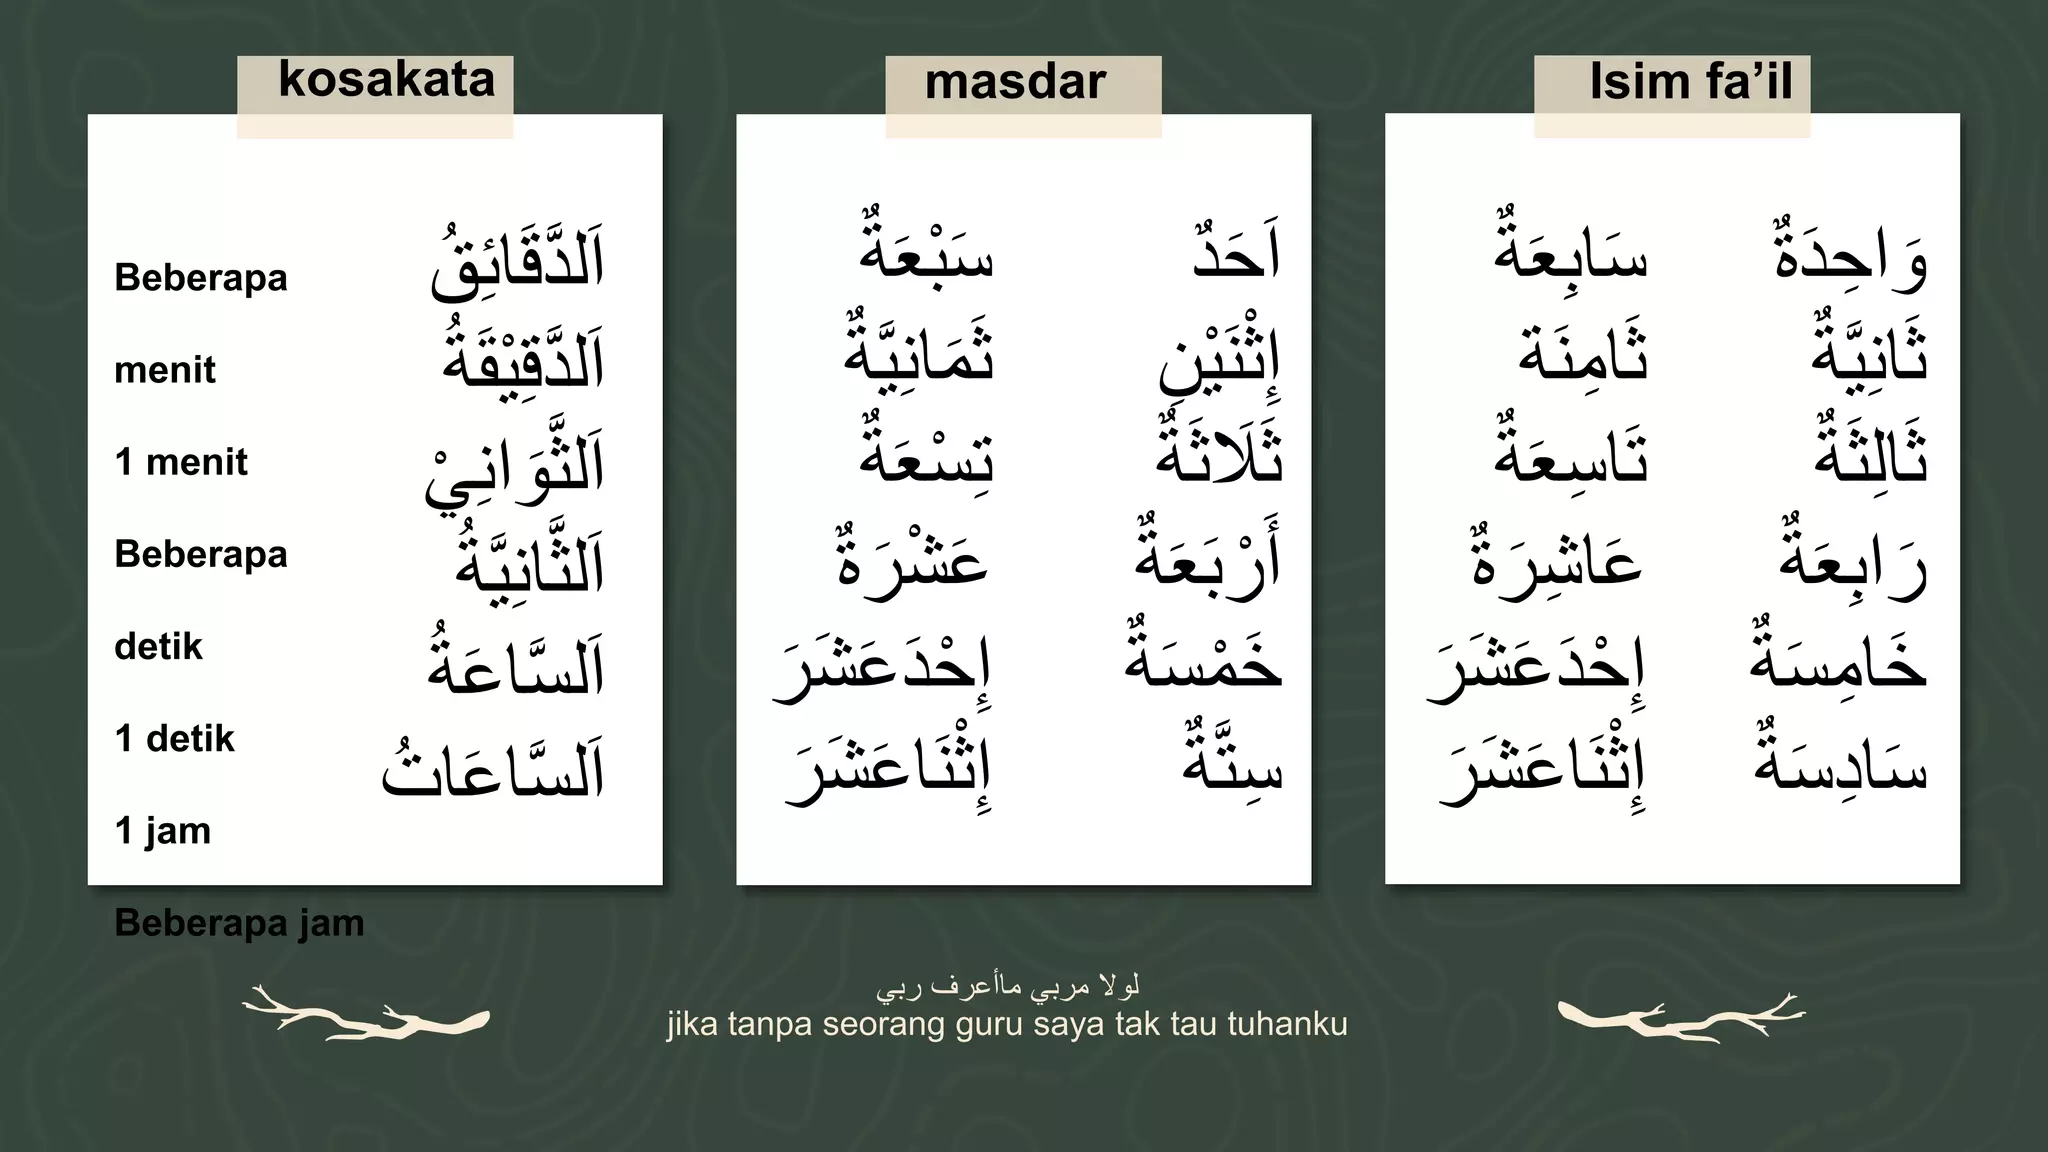 kosakata
Beberapa
menit
1 menit
Beberapa
detik
1 detik
1 jam
Beberapa jam
اَلدَّقَائِقُ
اَلدَّقِيْقَةُ
اَلثَّوَانِيْ
اَلثَّانِيَّةُ
اَلسَّاعَةُ
اَلسَّاعَاتُ
masdar
اَحَدٌ
إِثْنَيْنِ
ثَلَاثَةٌ
أَرْبَعَةٌ
خَمْسَةٌ
سِتَّةٌ
سَبْعَةٌ
ثَمَانِيَّةٌ
تِسْعَةٌ
عَشْرَةٌ
إِحْدَعَشَرَ
إِثْنَاعَشَرَ
Isim fa’il
وَاحِدَةٌ
ثَانِيَّةٌ
ثَالِثَةٌ
رَابِعَةٌ
خَامِسَةٌ
سَادِسَةٌ
سَابِعَةٌ
ثَامِنَة
تَاسِعَةٌ
عَاشِرَةٌ
إِحْدَعَشَرَ
إِثْنَاعَشَرَ
لولا مربي ماأعرف ربي
jika tanpa seorang guru saya tak tau tuhanku